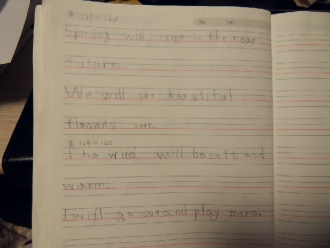 Spring will come in the near
future.
We will see beautiful
flowers soon.
The wind will be soft and
warm.
I will go out and play more.